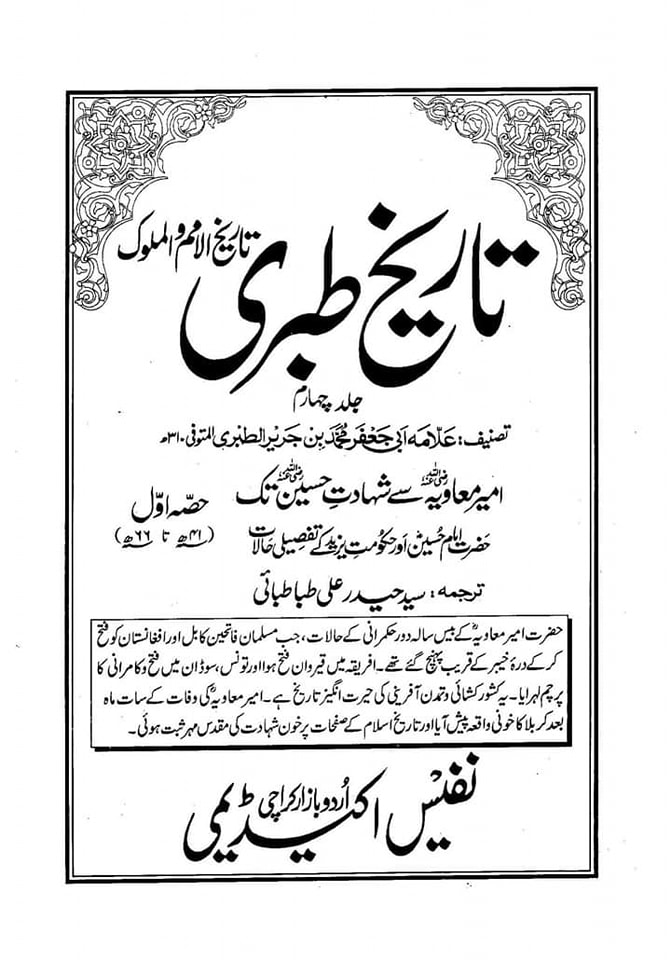 تاریخ الامم والملوک
تاریخ طبری
جلد چہارم
تصنیف: علّامہ ابی جعفر محمّد بن جریر الطبری المتوفی ۳۱۰ھ
امیر معاویہ رضی اللہ عنہ سے شہادتِ حسین رضی اللہ عنہ تک
حصّہ اوّل
حضرت امام حسینؓ اور حکومتِ یزید کے تفصیلی حالات
(۴۱ھ تا ۶۶ھ)
ترجمہ: سید حیدر علی طباطبائی
حضرت امیر معاویہؓ کے بیس سالہ دور حکمرانی کے حالات، جب مسلمان فاتحین کابل اور افغانستان کو فتح
کر کے درۂ خیبر کے قریب پہنچ گئے تھے۔ افریقہ میں قیروان فتح ہوا اور تونس، سوڈان میں فتح و کامرانی کا
پرچم لہرایا۔ یہ کشور کشائی و تمدن آفرینی کی حیرت انگیز تاریخ ہے۔ امیر معاویہؓ کی وفات کے سات ماہ
بعد کربلا کا خونی واقعہ پیش آیا اور تاریخ اسلام کے صفحات پر خون شہادت کی مقدس مہر ثبت ہوئی۔
نفیس اکیڈیمی
اُردو بازار کراچی